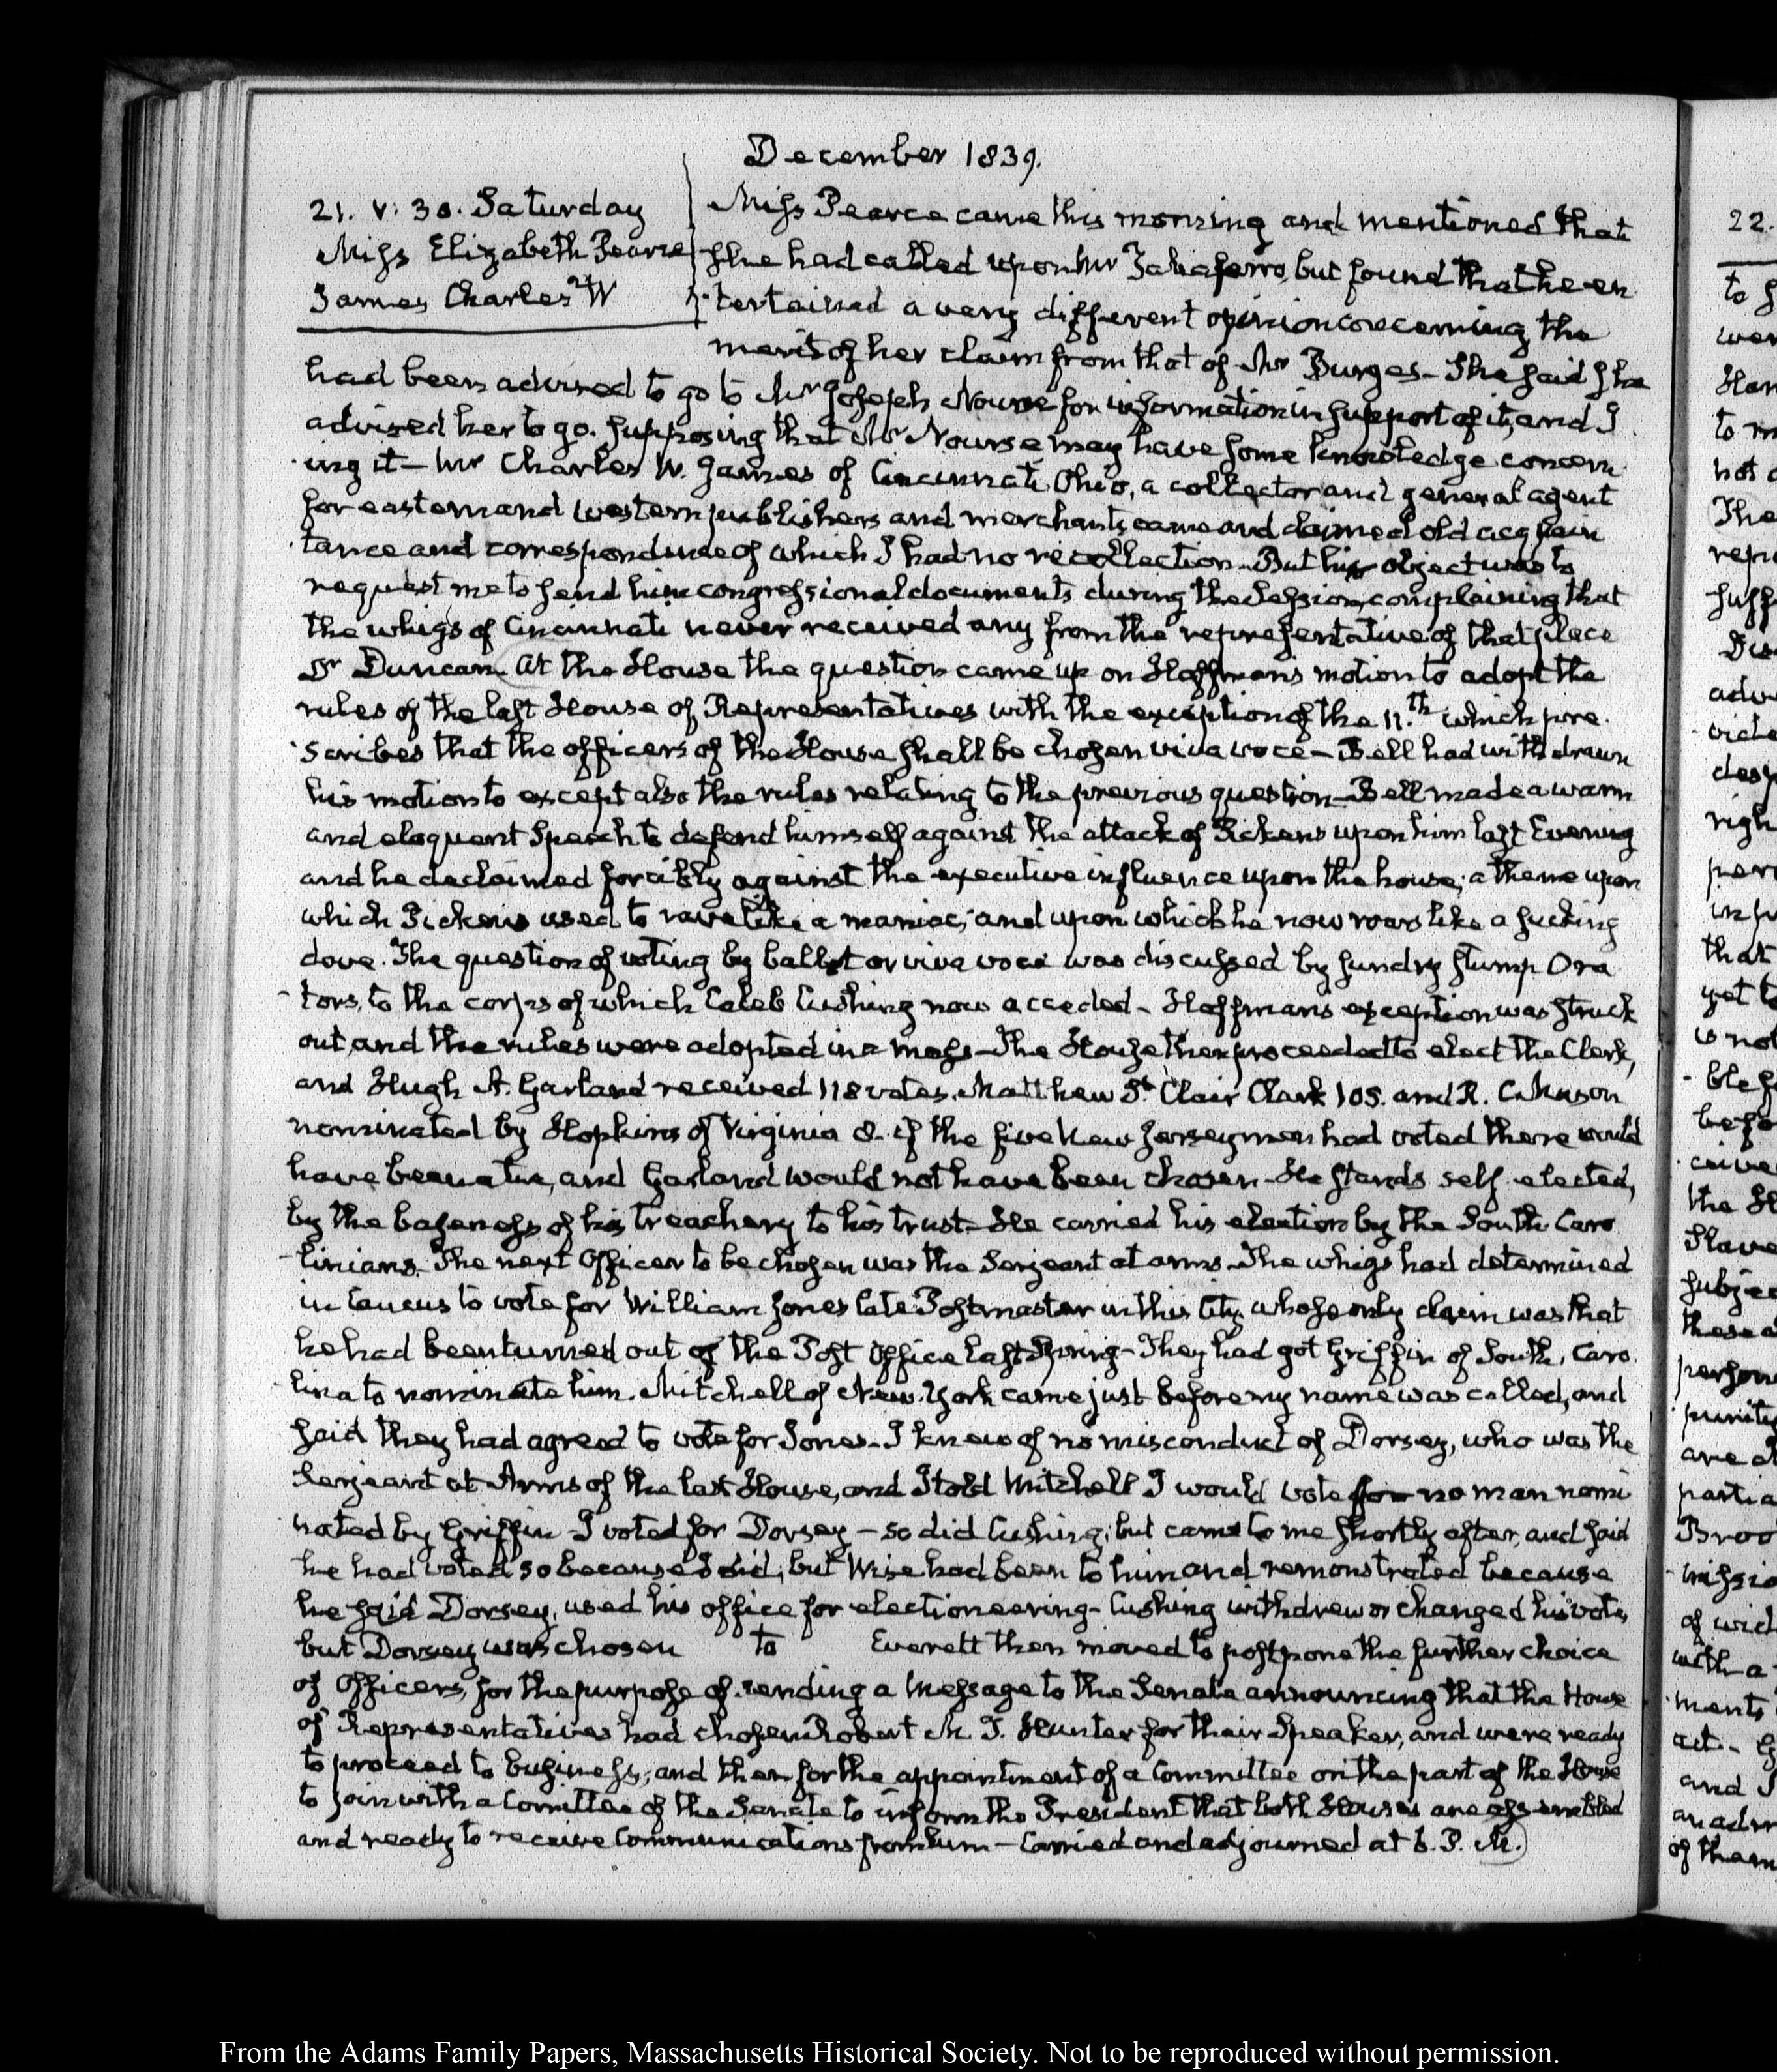 December 1839.
21. V: 30. Saturday
Miss Elizabeth Pearce
James Charles W
Miss Pearce came this morning and mentioned that
she had called upon Mr Taliaferro, but found that he en
tertained a very different opinion concerning the
merits of her claim from that of Mr Burges- She said she
had been advised to go to Mr Joseph Nourse for information in support of it, and I
advised her to go. supposing that Mr Nourse may have some knowledge concern
ing it- Mr Charles W. James of Cincinnati Ohio, a collector and general agent
for eastern and western publishers and merchants came and claimed old acquain
tance and correspondence of which I had no recollection- But his object was to
request me to send him congressional documents during the Session, complaining that
the whigs of Cincinnati never received any from the representative of that place
Dr Duncan. At the House the question came up on Hoffman's motion to adopt the
rules of the last House of Representatives with the exception of the 11.th which pre-
scribes that the officers of the House shall be chosen viva voce- Bell had withdrawn
his motion to except also the rules relating to the previous question- Bell made a warm
and eloquent Speech to defend himself against the attack of Pickens upon him last Evening
and he declaimed forcibly against the executive influence upon the house; a theme upon
which Pickens used to rave like a maniac, and upon which he now roars like a sucking
dove. The question of voting by ballot or viva voce was discussed by sundry stump Ora
tors, to the corps of which Caleb Cushing now acceded- Hoffman's exception was struck
out, and the rules were adopted in a mass- The House then proceeded to elect the Clerk,
and Hugh A. Garland received 118 votes. Matthew St. Clair Clark 105. and R. C. Mason
nominated by Hopkins of Virginia 8. if the five New Jerseymen had voted there would
have been a tie, and Garland would not have been chosen- He stands self-elected,
by the baseness of his treachery to his trust- He carried his election by the South Caro
linians. The next Officer to be chosen was the Serjeant at arms- The whigs had determined
in Caucus to vote for William Jones late Postmaster in this City, whose only claim was that
he had been turned out of the Post Office last Spring- They had got Griffin of South, Caro
lina to nominate him. Mitchell of New-York came just before my name was called, and
said they had agreed to vote for Jones- I knew of no misconduct of Dorsey, who was the
Serjeant at Arms of the last House, and I told Mitchell I would vote for no man nomi
nated by Griffin- I voted for Dorsey- so did Cushing; but came to me shortly after, and said
he had voted so because I did; but Wise had been to him and remonstrated because
he said Dorsey, used his office for electioneering- Cushing withdrew or changed his vote,
but Dorsey was chosen to Everett then moved to postpone the further choice
of Officers, for the purpose of sending a Message to the Senate announcing that the House
of Representatives had chosen Robert M. T. Hunter for their Speaker, and were ready
to proceed to business; and then for the appointment of a Committee on the part of the House
to join with a Comittee of the Senate to inform the President that both Houses are assembled
and ready to receive Communications from him- Carried and adjourned at 6. P. M.
22.
From the Adams Family Papers, Massachusetts Historical Society. Not to be reproduced without permission.